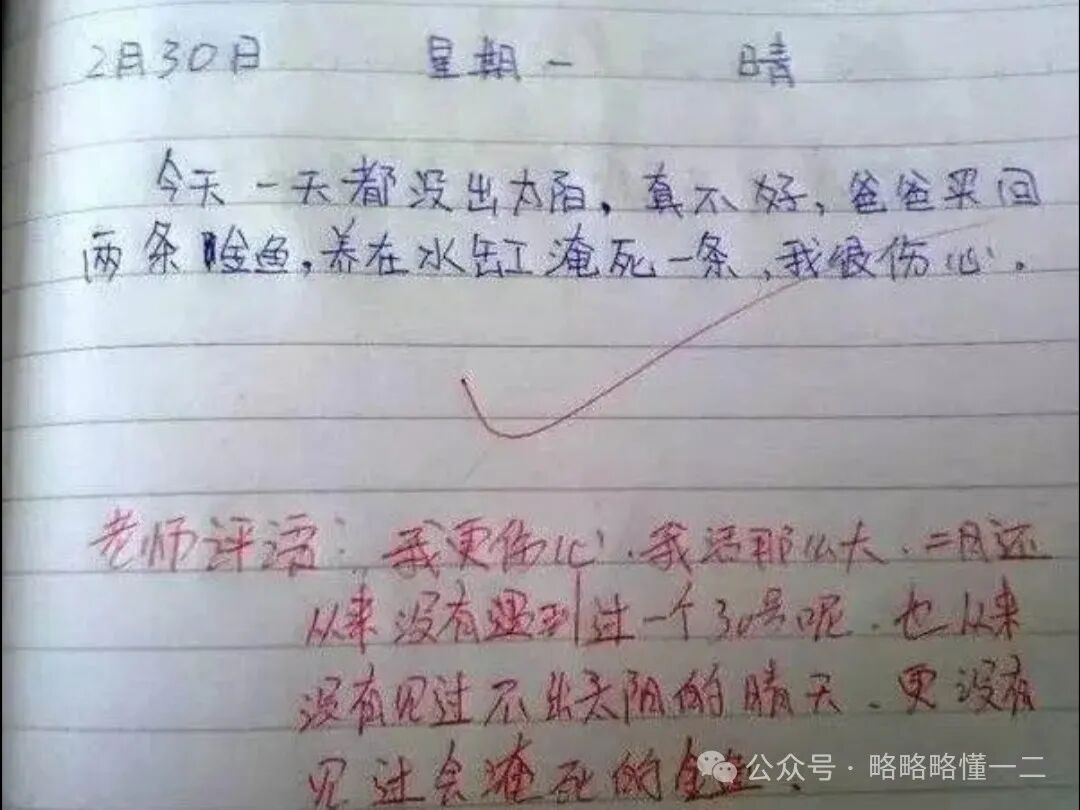 2月30日 星期一 晴
今天一天都没出太阳,真不好,爸爸买回
两条金鱼,养在水缸淹死一条,我很伤心。
老师评语:我更伤心.我活那么大.二月还
从来没有遇到过一个30号呢.也从来
没有见过不出太阳的晴天.更没有
见过会淹死的金鱼.
公众号·略略略懂一二